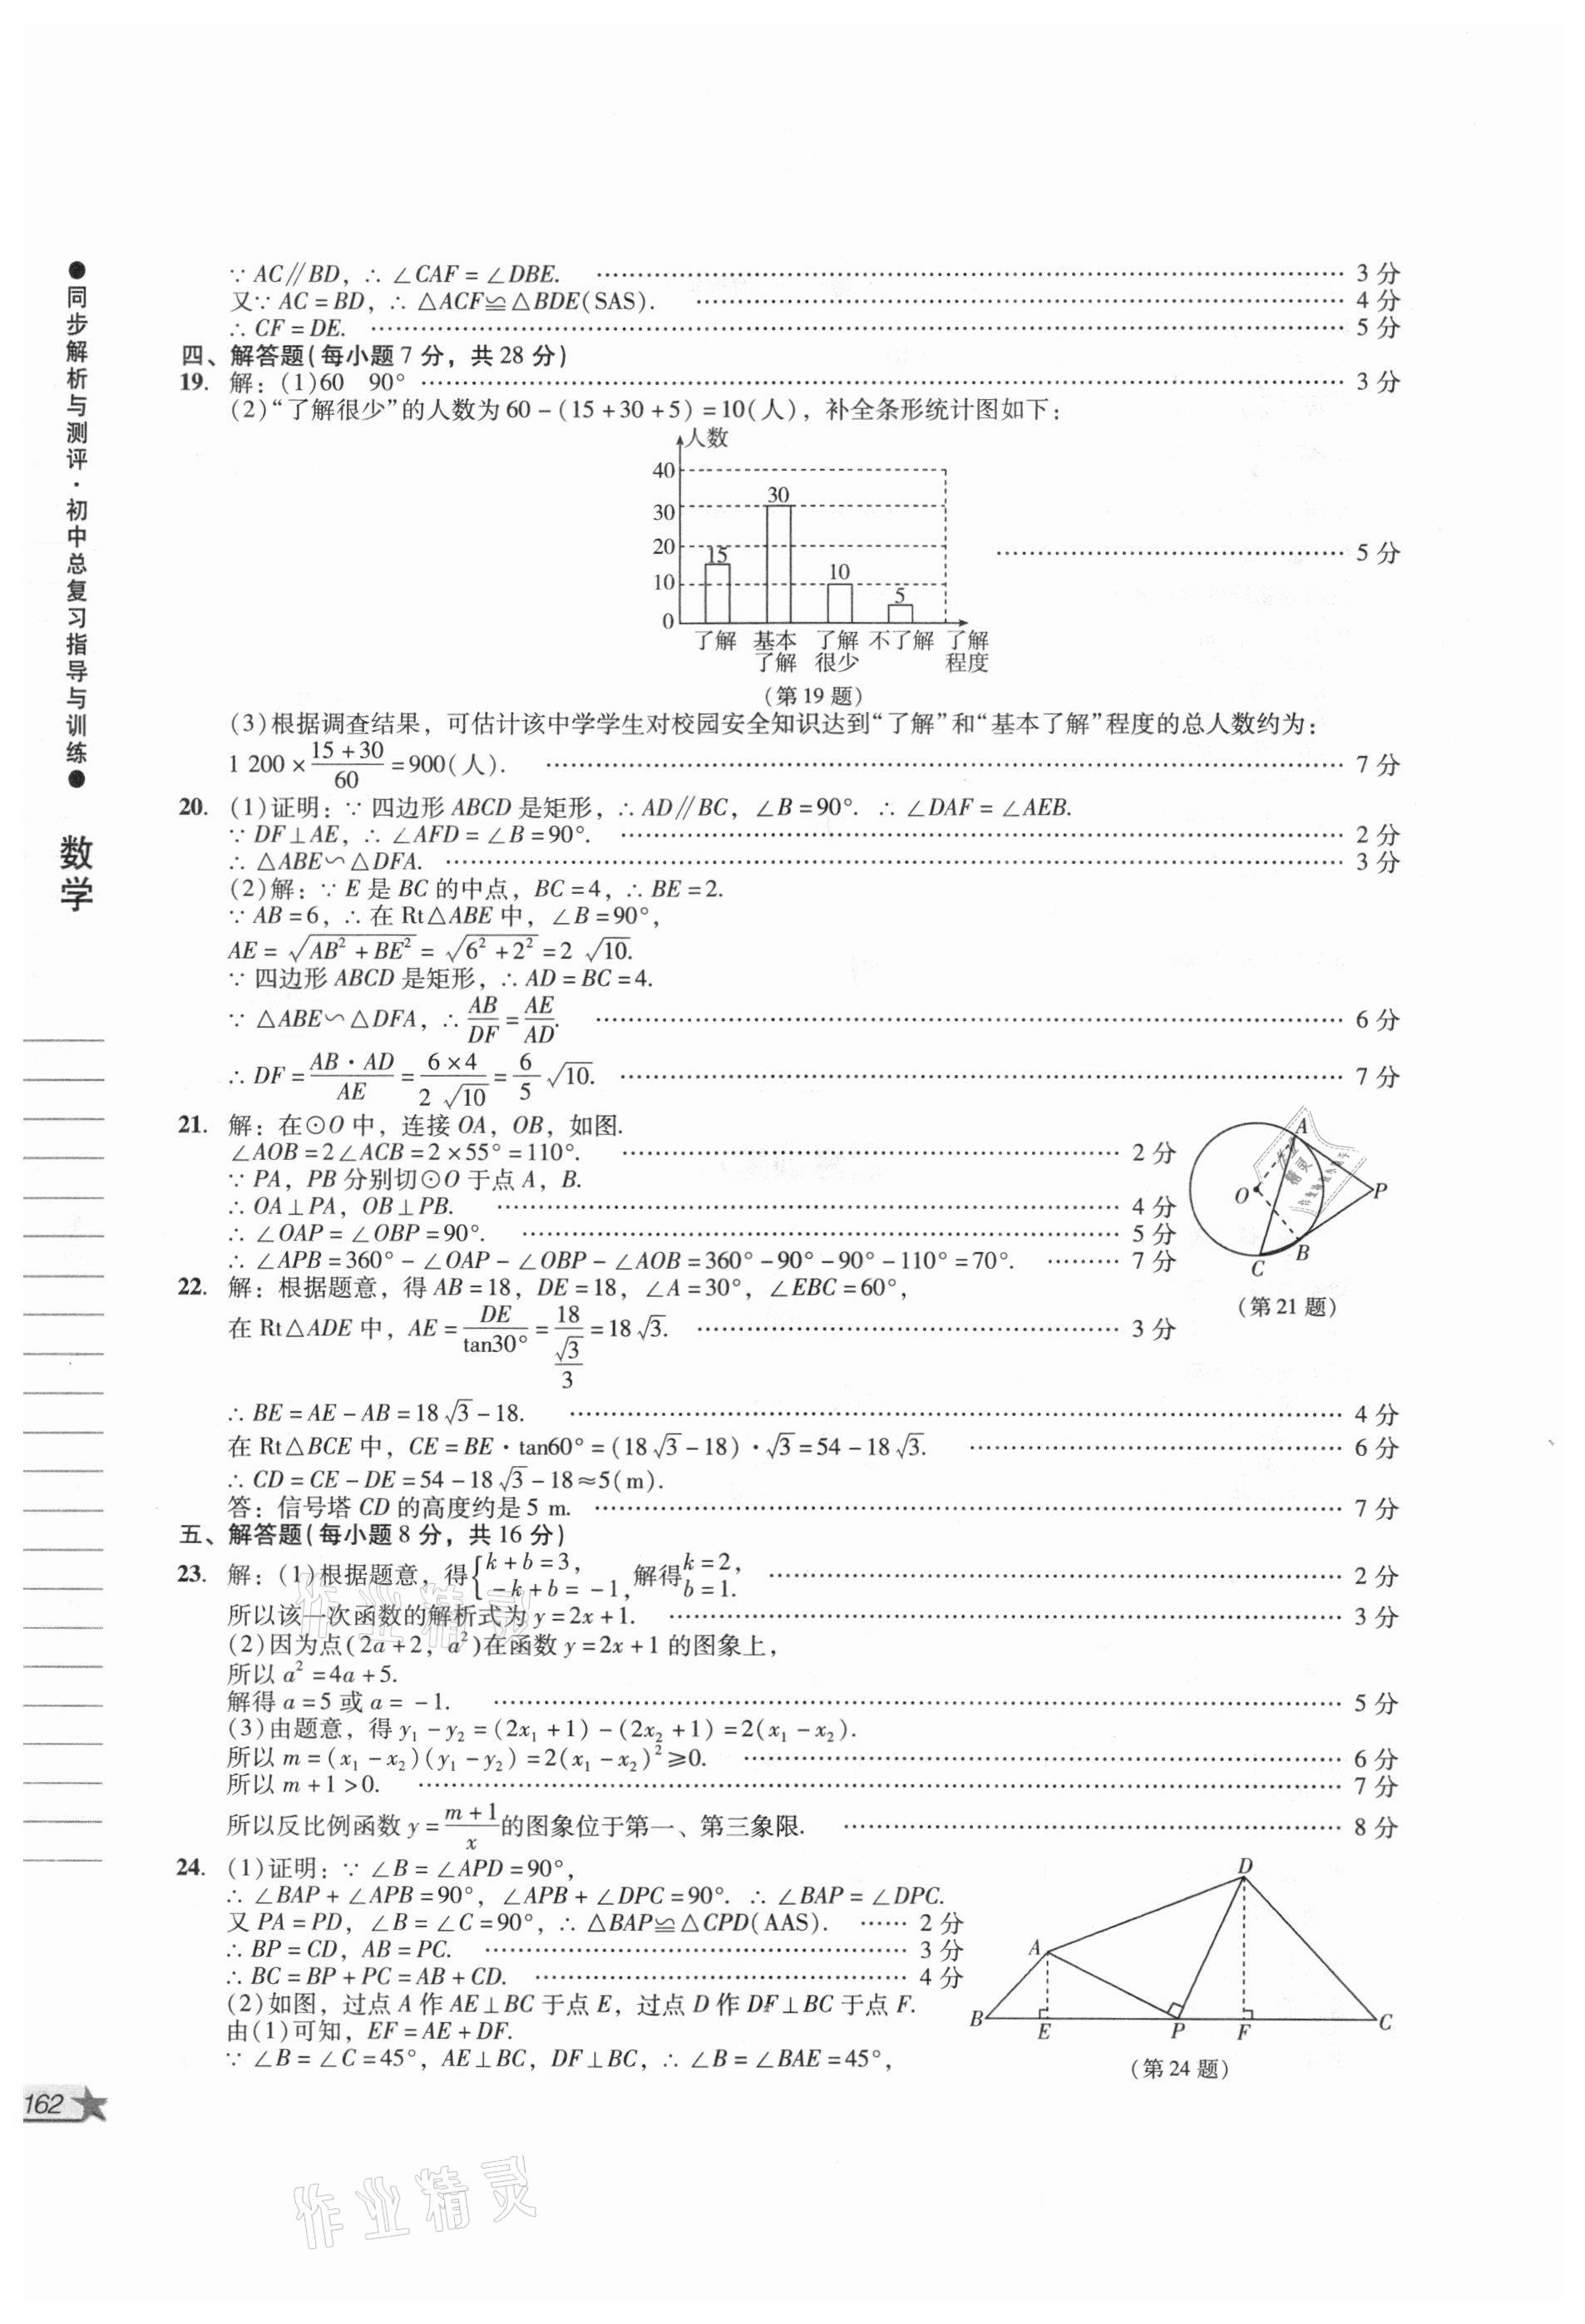 ∵ AC∥BD，∴ ∠CAF = ∠DBE. 3 分
又∵ AC = BD，∴ △ACF≌△BDE(SAS). 4 分
∴ CF = DE. 5 分
四、解答题(每小题 7 分，共 28 分)
19. 解：(1)60 90° 3 分
(2)“了解很少”的人数为 60 - (15 + 30 + 5) = 10(人)，补全条形统计图如下：
人数
40
30
20
10
0
15
30
10
5
5 分
了解 基本了解 了解很少 不了解 了解程度
(第 19 题)
(3)根据调查结果，可估计该中学学生对校园安全知识达到“了解”和“基本了解”程度的总人数约为：
1 200 × (15 + 30)/60 = 900(人). 7 分
20. (1)证明：∵ 四边形 ABCD 是矩形，∴ AD∥BC，∠B = 90°. ∴ ∠DAF = ∠AEB.
∵ DF⊥AE，∴ ∠AFD = ∠B = 90°. 2 分
∴ △ABE∽△DFA. 3 分
(2)解：∵ E 是 BC 的中点，BC = 4，∴ BE = 2.
∵ AB = 6，∴ 在 Rt△ABE 中，∠B = 90°，
AE = √(AB² + BE²) = √(6² + 2²) = 2 √10.
∵ 四边形 ABCD 是矩形，∴ AD = BC = 4.
∵ △ABE∽△DFA，∴ AB/DF = AE/AD. 6 分
∴ DF = (AB · AD)/AE = (6 × 4)/(2 √10) = 6/5 √10. 7 分
21. 解：在⊙O 中，连接 OA，OB，如图.
∠AOB = 2∠ACB = 2 × 55° = 110°. 2 分
∵ PA，PB 分别切⊙O 于点 A，B.
∴ OA⊥PA，OB⊥PB. 4 分
∴ ∠OAP = ∠OBP = 90°. 5 分
∴ ∠APB = 360° - ∠OAP - ∠OBP - ∠AOB = 360° - 90° - 90° - 110° = 70°. 7 分
A
O
P
B
C
(第 21 题)
22. 解：根据题意，得 AB = 18，DE = 18，∠A = 30°，∠EBC = 60°，
在 Rt△ADE 中，AE = DE/tan30° = 18/(√3/3) = 18 √3. 3 分
∴ BE = AE - AB = 18 √3 - 18. 4 分
在 Rt△BCE 中，CE = BE · tan60° = (18 √3 - 18) · √3 = 54 - 18 √3. 6 分
∴ CD = CE - DE = 54 - 18 √3 - 18 ≈ 5(m).
答：信号塔 CD 的高度约是 5 m. 7 分
五、解答题(每小题 8 分，共 16 分)
23. 解：(1)根据题意，得{k + b = 3，-k + b = -1，解得 k = 2，b = 1. 2 分
所以该一次函数的解析式为 y = 2x + 1. 3 分
(2)因为点(2a + 2，a²)在函数 y = 2x + 1 的图象上，
所以 a² = 4a + 5.
解得 a = 5 或 a = -1. 5 分
(3)由题意，得 y₁ - y₂ = (2x₁ + 1) - (2x₂ + 1) = 2(x₁ - x₂).
所以 m = (x₁ - x₂)(y₁ - y₂) = 2(x₁ - x₂)² ≥ 0. 6 分
所以 m + 1 > 0. 7 分
所以反比例函数 y = (m + 1)/x 的图象位于第一、第三象限. 8 分
24. (1)证明：∵ ∠B = ∠APD = 90°，
∴ ∠BAP + ∠APB = 90°，∠APB + ∠DPC = 90°. ∴ ∠BAP = ∠DPC.
又 PA = PD，∠B = ∠C = 90°，∴ △BAP≌△CPD(AAS). 2 分
∴ BP = CD，AB = PC. 3 分
∴ BC = BP + PC = AB + CD. 4 分
(2)如图，过点 A 作 AE⊥BC 于点 E，过点 D 作 DF⊥BC 于点 F.
由(1)可知，EF = AE + DF.
∵ ∠B = ∠C = 45°，AE⊥BC，DF⊥BC，∴ ∠B = ∠BAE = 45°，
D
A
B E P F C
(第 24 题)
●同步解析与测评·初中总复习指导与训练●
数学
162
作业精灵
作业精灵